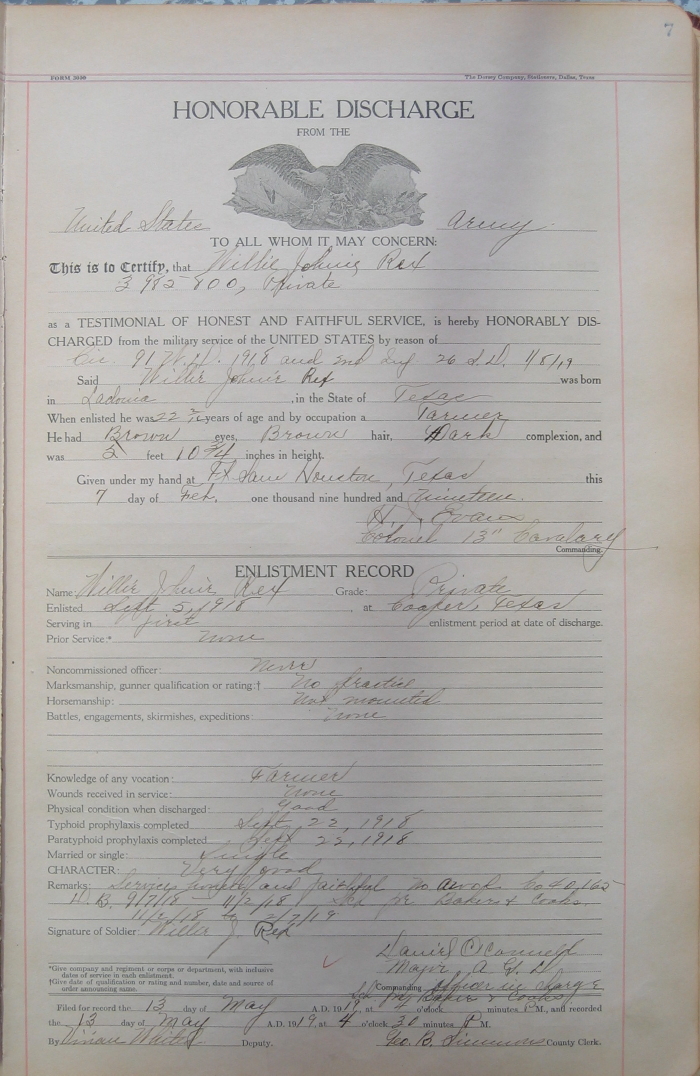 7
FORM 3099 The Dorsey Company, Stationers, Dallas, Texas
HONORABLE DISCHARGE
FROM THE
United States Army.
TO ALL WHOM IT MAY CONCERN:
This is to Certify, that Willie Johnie Rex
3 982 800, Private
as a TESTIMONIAL OF HONEST AND FAITHFUL SERVICE, is hereby HONORABLY DIS-
CHARGED from the military service of the UNITED STATES by reason of
Cir. 91 W.D. 1918 and 2nd Ind 26 S.D. 1/8/19
Said Willie Johnie Rex was born
in Ladonia, in the State of Texas
When enlisted he was 22 years of age and by occupation a Farmer
He had Brown eyes, Brown hair, Dark complexion, and
was 5 feet 10 3/4 inches in height.
Given under my hand at Ft Sam Houston, Texas this
7 day of Feb. one thousand nine hundred and nineteen.
H. J. Evans
Colonel 13" Cavalary
Commanding.
ENLISTMENT RECORD
Name: Willie Johnie Rex Grade: Private
Enlisted Sept 5, 1918 at Cooper, Texas
Serving in first enlistment period at date of discharge.
Prior Service:* none
Noncommissioned officer: never
Marksmanship, gunner qualification or rating:† No practice
Horsemanship: Not mounted
Battles, engagements, skirmishes, expeditions: none
Knowledge of any vocation: Farmer
Wounds received in service: none
Physical condition when discharged: good
Typhoid prophylaxis completed Sept, 22, 1918
Paratyphoid prophylaxis completed Sept 22, 1918
Married or single: Single
CHARACTER: Very good
Remarks: Service honest and faithful no awol
D. B. 9/7/18 - 11/2/18 Bakers & Cooks,
11/2/18 to 2/7/19
Signature of Soldier: Willie J. Rex
Daniel O'Connell
Major A G D
*Give company and regiment or corps or department, with inclusive
dates of service in each enlistment.
†Give date of qualification or rating and number, date and source of
order announcing same.
Commanding
Baker & Cooks
Filed for record the 13 day of May A.D. 1919, at 4 o'clock minutes P. M., and recorded
the 13 day of May A.D. 1919, at 4 o'clock 30 minutes P M.
By Vivian White Deputy. Geo. B. Simmons County Clerk.